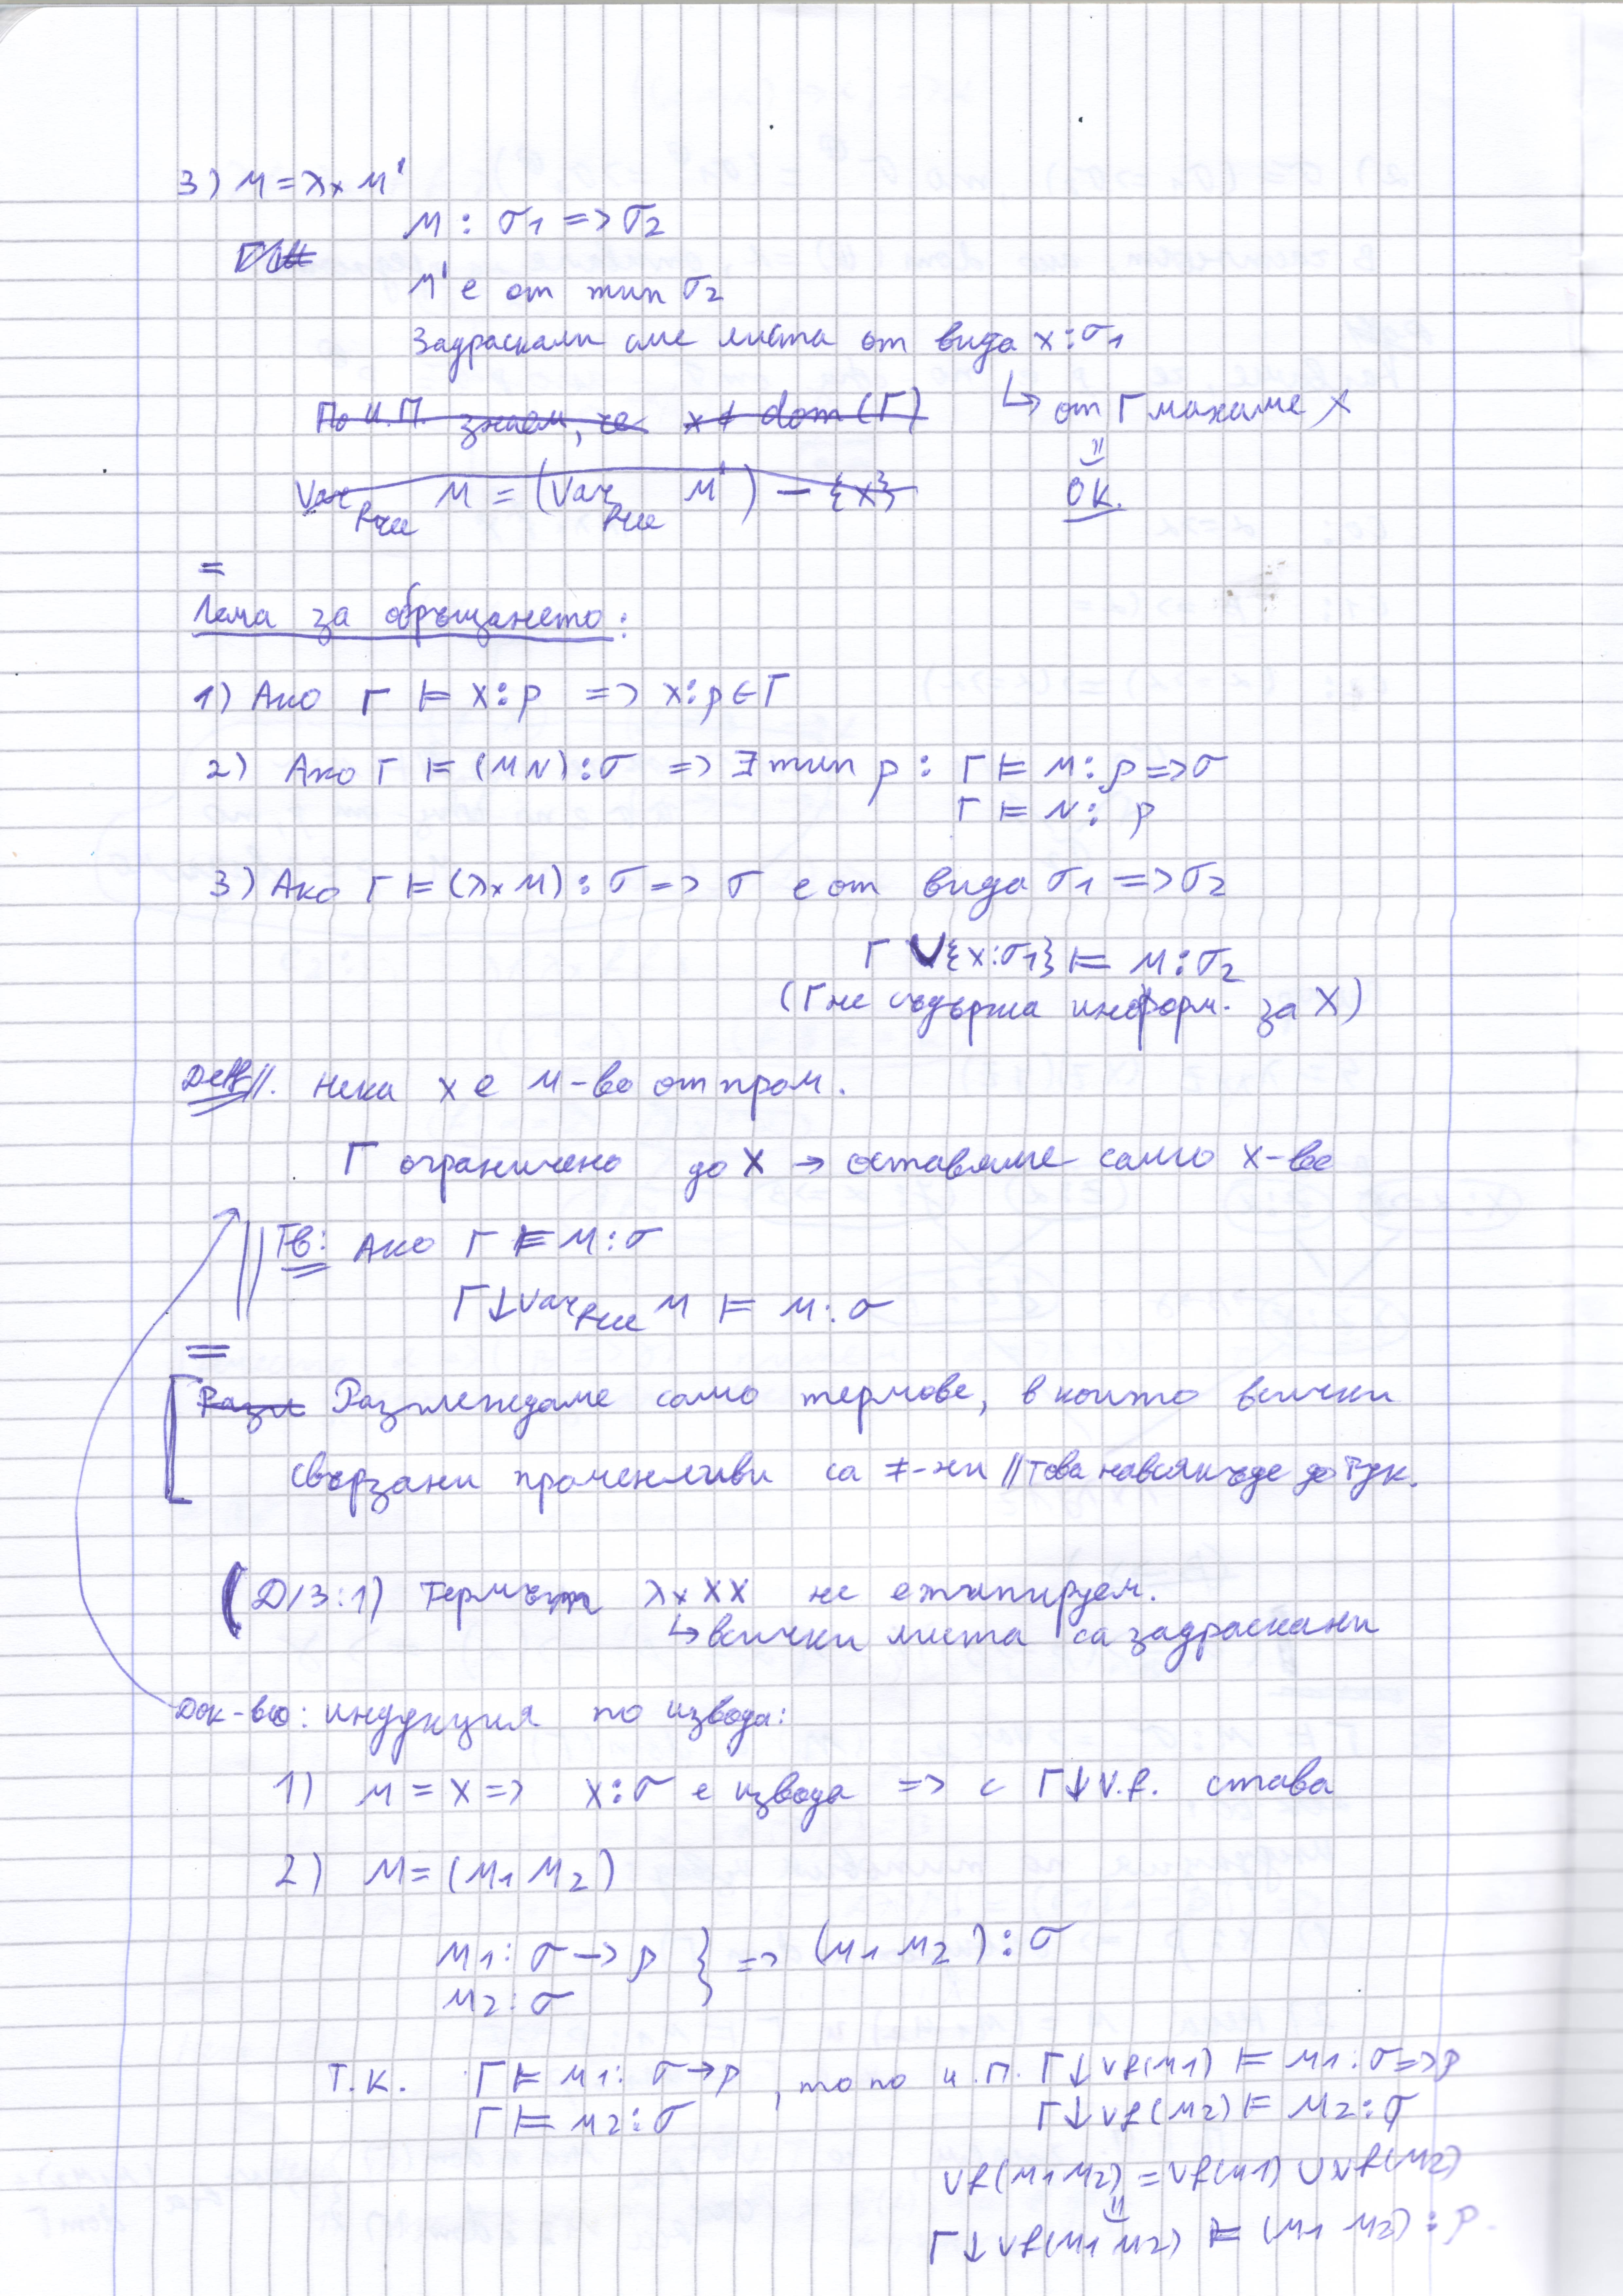 3) M = λx M'
M : σ1 => σ2
M' е от тип σ2
Задраскали сме листа от вида x : σ1
По И.П. знаем, че x ∉ dom(Γ) ↳ от Γ махаме x
Var free M = (Var free M') − {x} OK.
=
Лема за обръщането:
1) Ако Γ ⊨ x : ρ => x : ρ ∈ Γ
2) Ако Γ ⊨ (MN) : σ => ∃ тип ρ : Γ ⊨ M : ρ => σ
Γ ⊨ N : ρ
3) Ако Γ ⊨ (λx M) : σ => σ е от вида σ1 => σ2
Γ ∪ {x : σ1} ⊨ M : σ2
(Γ не съдържа информ. за X)
Деф//. Нека X е м-во от пром.
Γ ограничено до X → оставяме само X-ве
Тв: Ако Γ ⊨ M : σ
Γ↓Var free M ⊨ M : σ
=
Разгл Разглеждаме само термове, в които всички
свързани променливи са ≠-ни // Това навсякъде до тук.
(Д/З : 1) Термът λx XX не е типируем.
↳ всички листа са задраскани
Док-во: индукция по извода:
1) M = x => x : σ е извода => с Γ↓v.f. става
2) M = (M1 M2)
M1 : σ → ρ } => (M1 M2) : σ
M2 : σ
Т.к. Γ ⊨ M1 : σ → ρ , то по и.п. Γ↓vf(M1) ⊨ M1 : σ => ρ
Γ ⊨ M2 : σ Γ↓vf(M2) ⊨ M2 : σ
vf(M1M2) = vf(M1) ∪ vf(M2)
Γ↓vf(M1 M2) ⊨ (M1 M2) : ρ